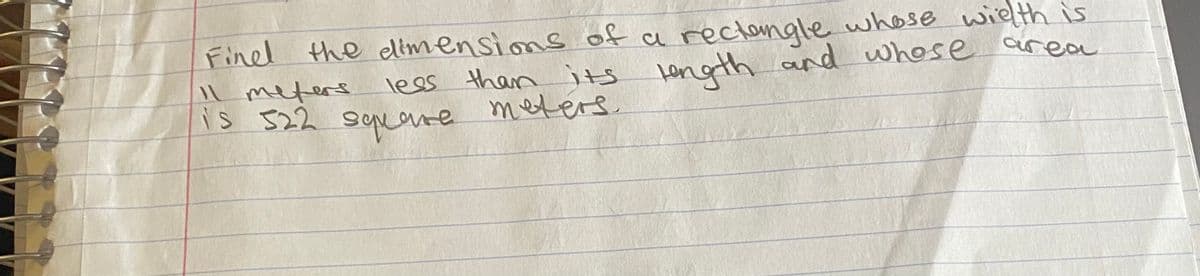 Find the dimensions of a rectangle whose width is
11 meters less than its length and whose area
is 522 square meters.